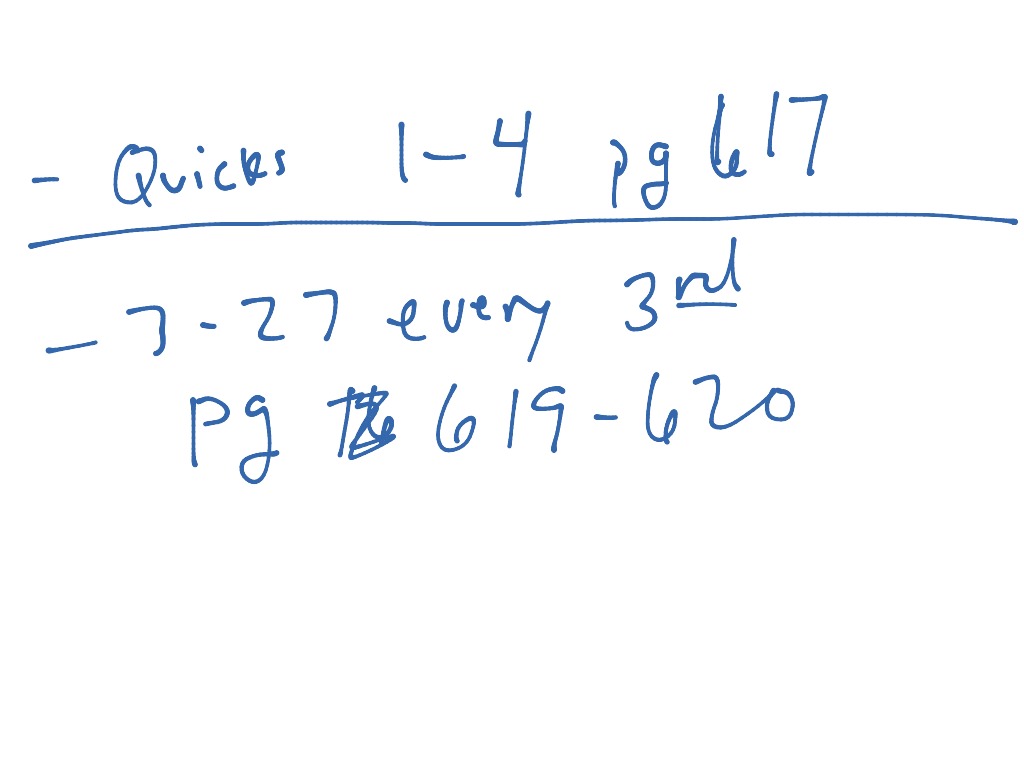 - Quicks 1-4 pg 617
- 3-27 every 3rd
pg 619-620